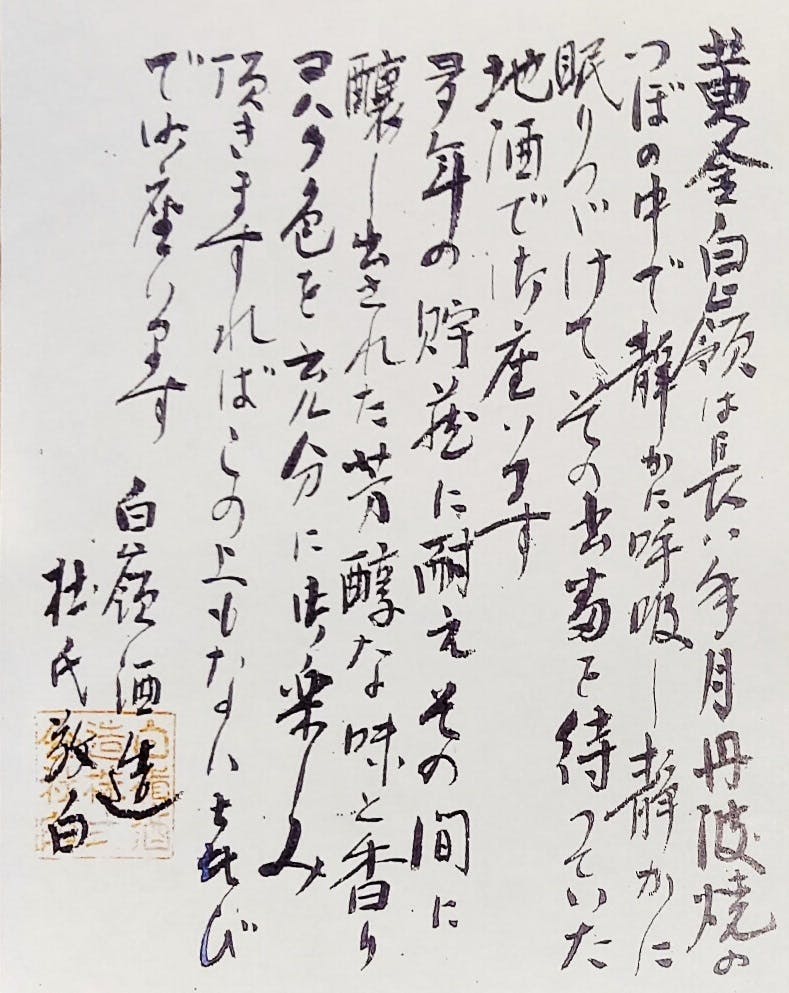 黄金白嶺は長い年月丹波焼の
つぼの中で静かに呼吸し静かに
眠りつづけてその出番を待っていた
地酒で御座います
多年の貯蔵に耐えその間に
醸し出された芳醇な味と香り
コハク色を充分に御楽しみ
頂きますればこの上もない㐂び
で御座います
白嶺酒造
杜氏敬白